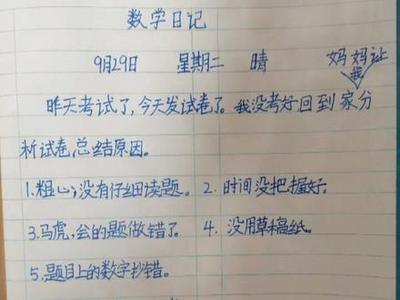 数学日记
9月29日 星期二 晴 妈妈让我
昨天考试了,今天发试卷了。我没考好回到家分
析试卷,总结原因。
1.粗心,没有仔细读题。 2.时间没把握好。
3.马虎,会的题做错了。 4.没用草稿纸。
5.题目上的数字抄错。